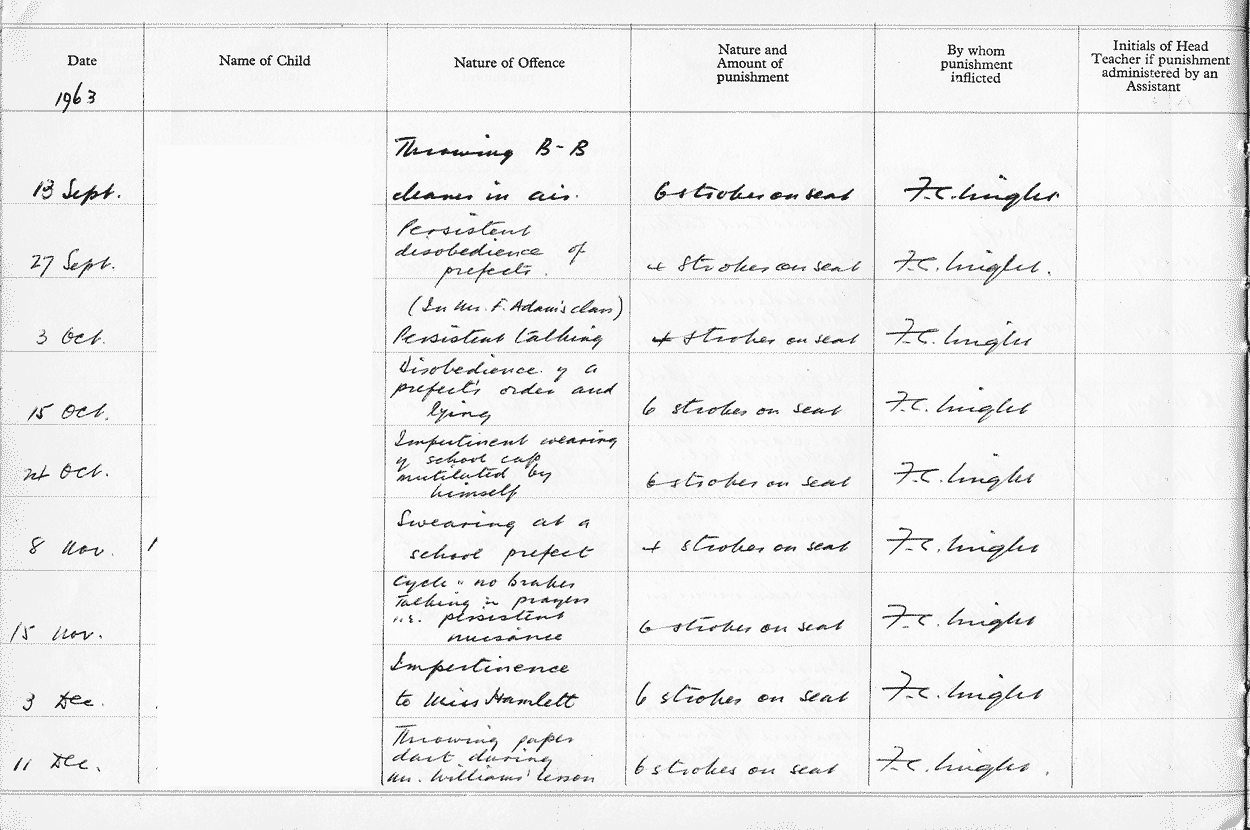 Date
Name of Child
Nature of Offence
Nature and
Amount of
punishment
By whom
punishment
inflicted
Initials of Head
Teacher if punishment
administered by an
Assistant
1963
13 Sept.
Throwing B-B
cleaner in air.
6 strokes on seat
F.C. 
27 Sept.
Persistent
disobedience of
prefects.
4 strokes on seat
F.C.
3 Oct.
(In Mr. F. Adam's class)
Persistent talking
4 strokes on seat
F.C.
15 Oct.
Disobedience of a
prefect's order and
lying
6 strokes on seat
F.C.
24 Oct.
Impertinent wearing
of school cap
mutilated by
himself
6 strokes on seat
F.C.
8 Nov.
Swearing at a
school prefect
4 strokes on seat
F.C.
15 Nov.
Cycle - no brakes
Talking in prayers
i.e. persistent
nuisance
6 strokes on seat
F.C.
3 Dec.
Impertinence
to Miss Hamlett
6 strokes on seat
F.C.
11 Dec.
Throwing paper
dart during
Mr. Williams' lesson
6 strokes on seat
F.C.